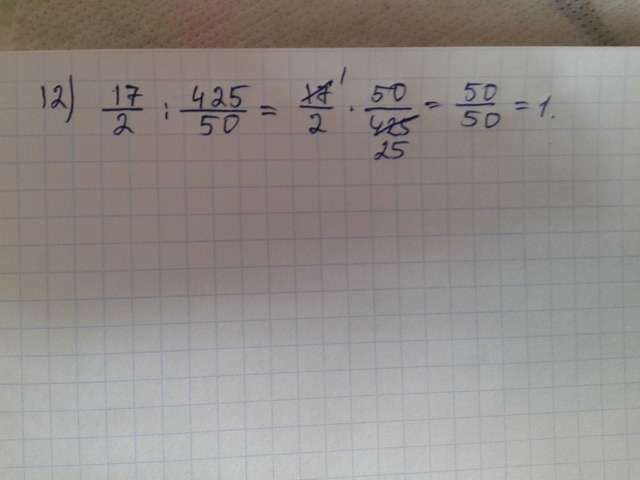 12) 17/2 : 425/50 = 17 1/2 · 50/425 25 = 50/50 = 1.